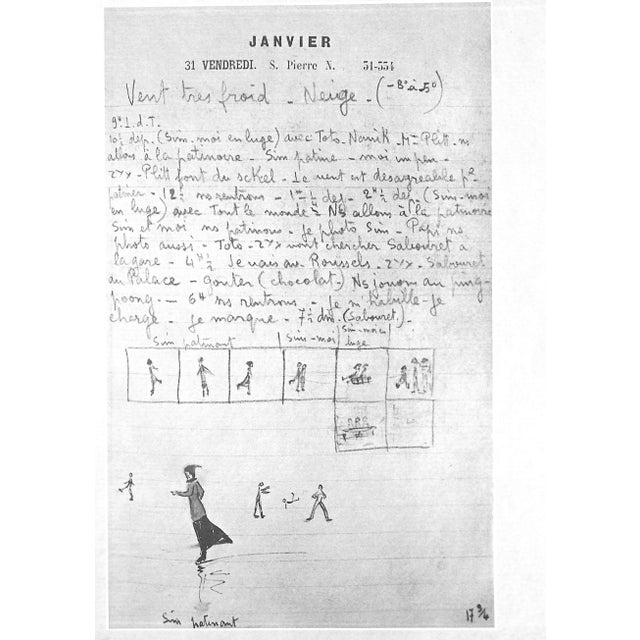 JANVIER
31 VENDREDI. S. Pierre N. 31-334
Vent tres froid - Neige - (-8° à -5°)
9h 1. d. T.
10½ dep. (Sim-moi en luge) avec Toto - Nanik - Plitt - ns
allons à la patinoire - Sim patine - moi un peu -
Zyx - Plitt font du sckel - Le vent est desagreable pr
patiner - 12½ ns rentrons - 1h½ dej - 2h½ dep. (Sim-moi
en luge) avec Tout le monde Ns allons à la patinoire
Sim et moi ns patinons - je photo Sim - Papi ns
photo aussi - Toto - Zyx vont chercher Sabouret à
la gare - 4h½ Je vais au Roussels - Zyx - Sabouret
au Palace - gouter (chocolat) Ns jouons au ping-
poong - 6h ns rentrons - je m'habille - je
charge - je marque - 7½ din. (Sabouret) -
Sim patinant Sim-moi Sim-moi luge
Sim patinant 17 3/4